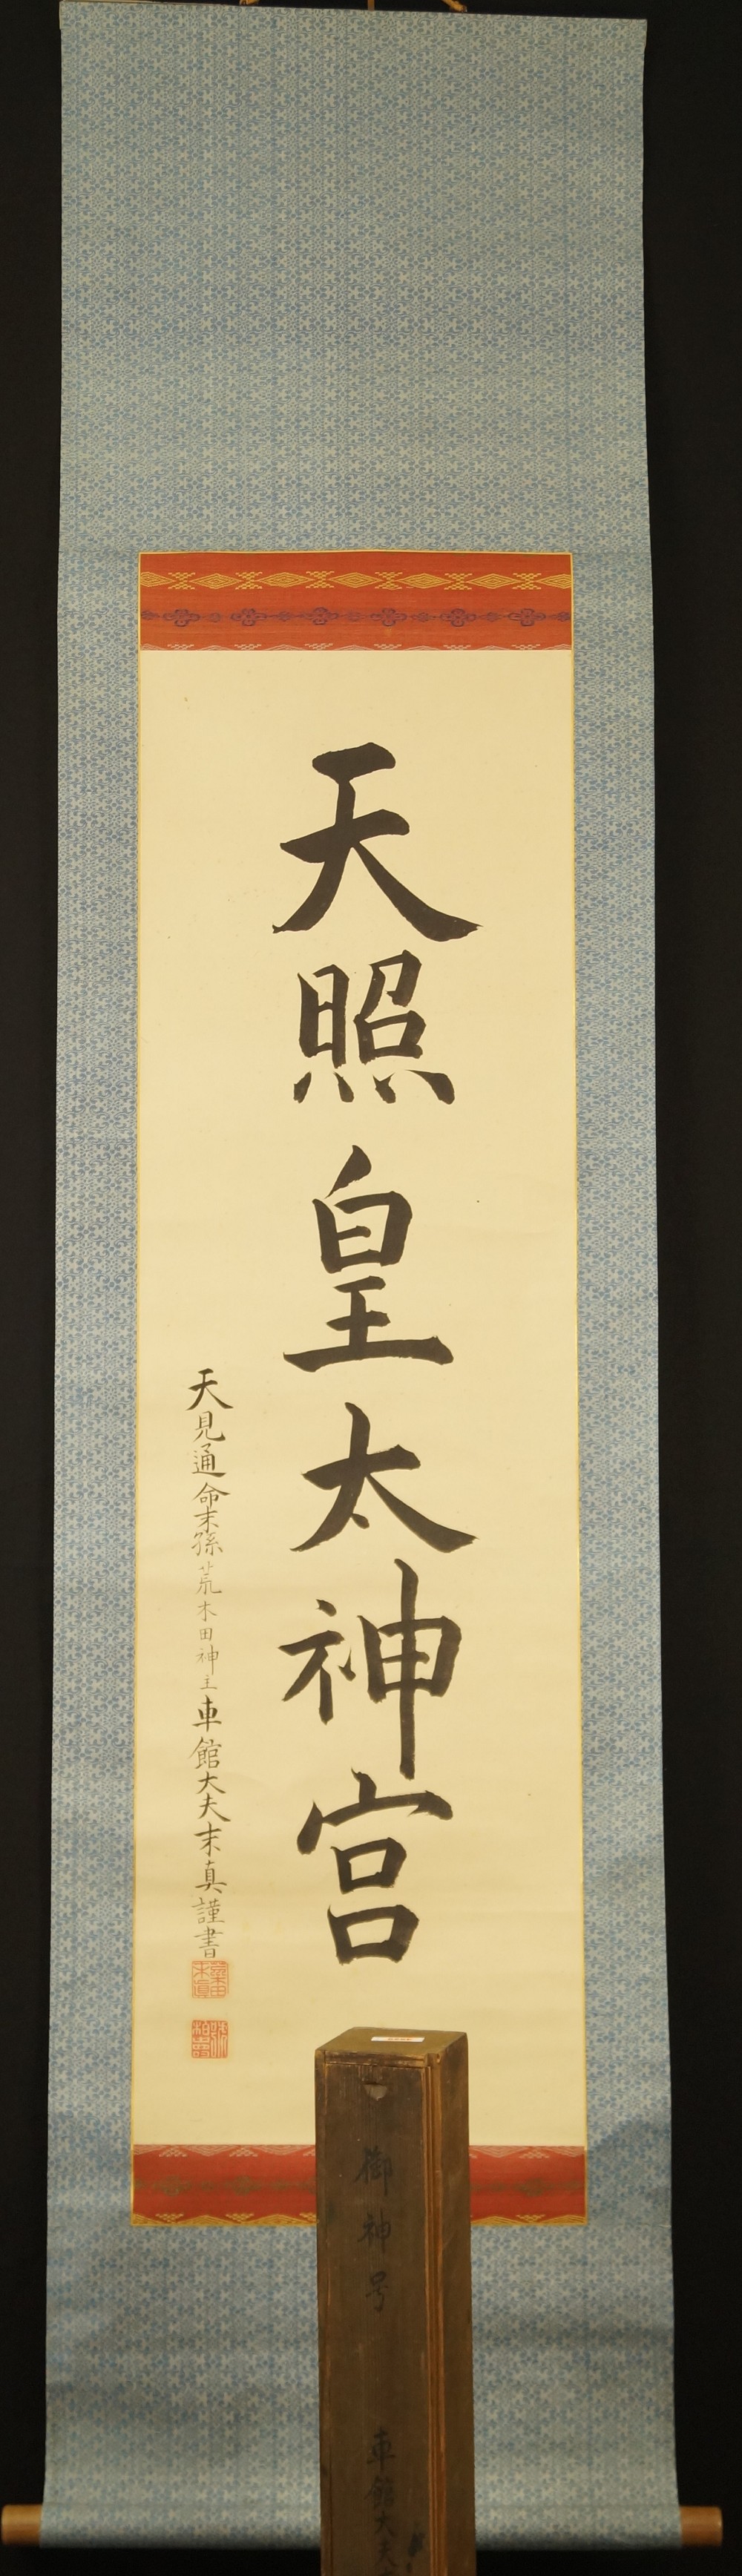 天照皇太神宮
天見通命末孫荒木田神主車館大夫末真謹書
御神号
車館大夫